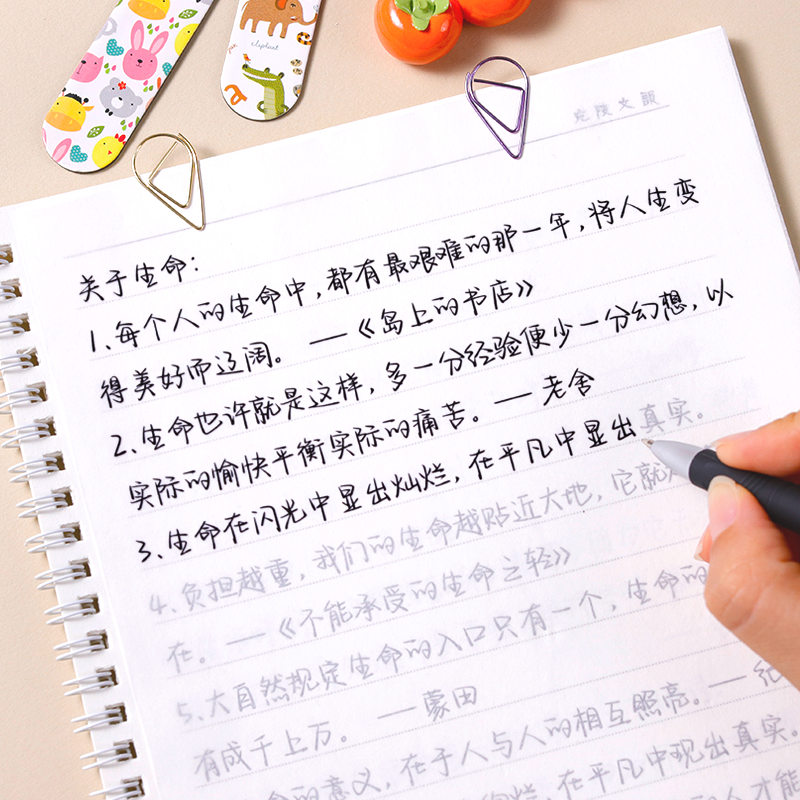 elephant
关于生命:
1.每个人的生命中,都有最艰难的那一年,将人生变
得美好而辽阔。 —《岛上的书店》
2.生命也许就是这样,多一分经验便少一分幻想,以
实际的愉快平衡实际的痛苦。— 老舍
3.生命在闪光中显出灿烂,在平凡中显出真实。
4.负担越重,我们的生命越贴近大地,它就
在。—《不能承受的生命之轻》
5.大自然规定生命的入口只有一个,生命的
有成千上万。 — 蒙田
命的意义,在于人与人的相互照亮。— 纪
烂,在平凡中现出真实。
人才能